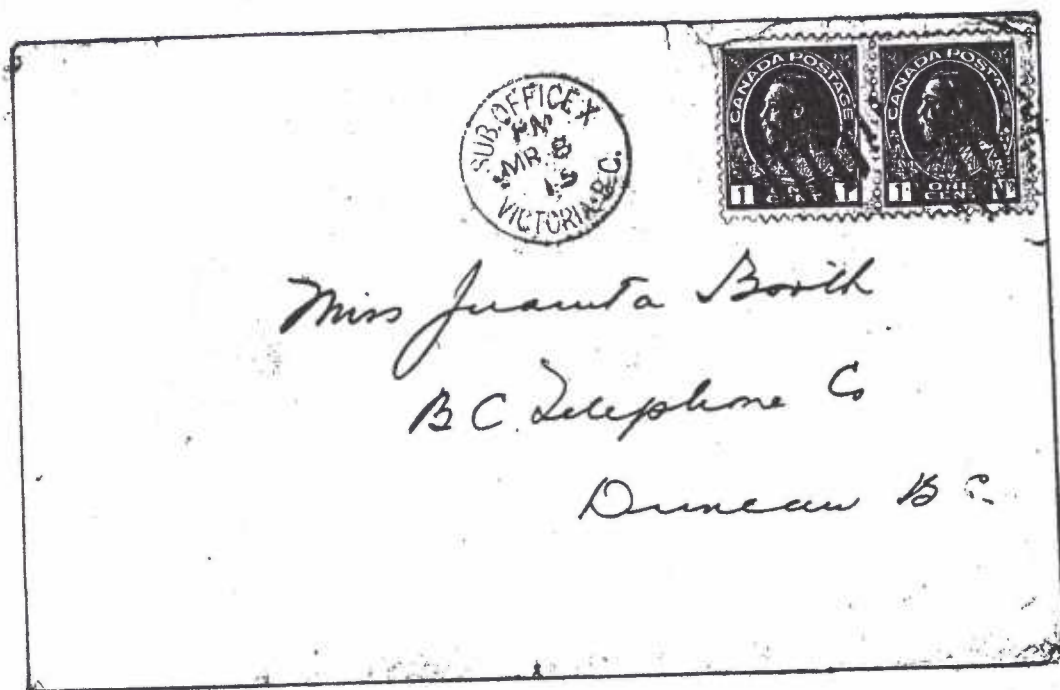 SUB. OFFICE X
PM
MR 8
15
VICTORIA. B.C.
CANADA POSTAGE
1 CENT 1
CANADA POSTAGE
1 ONE CENT 1
Miss Juanita Booth
B C. Telephone Co
Duncan B C